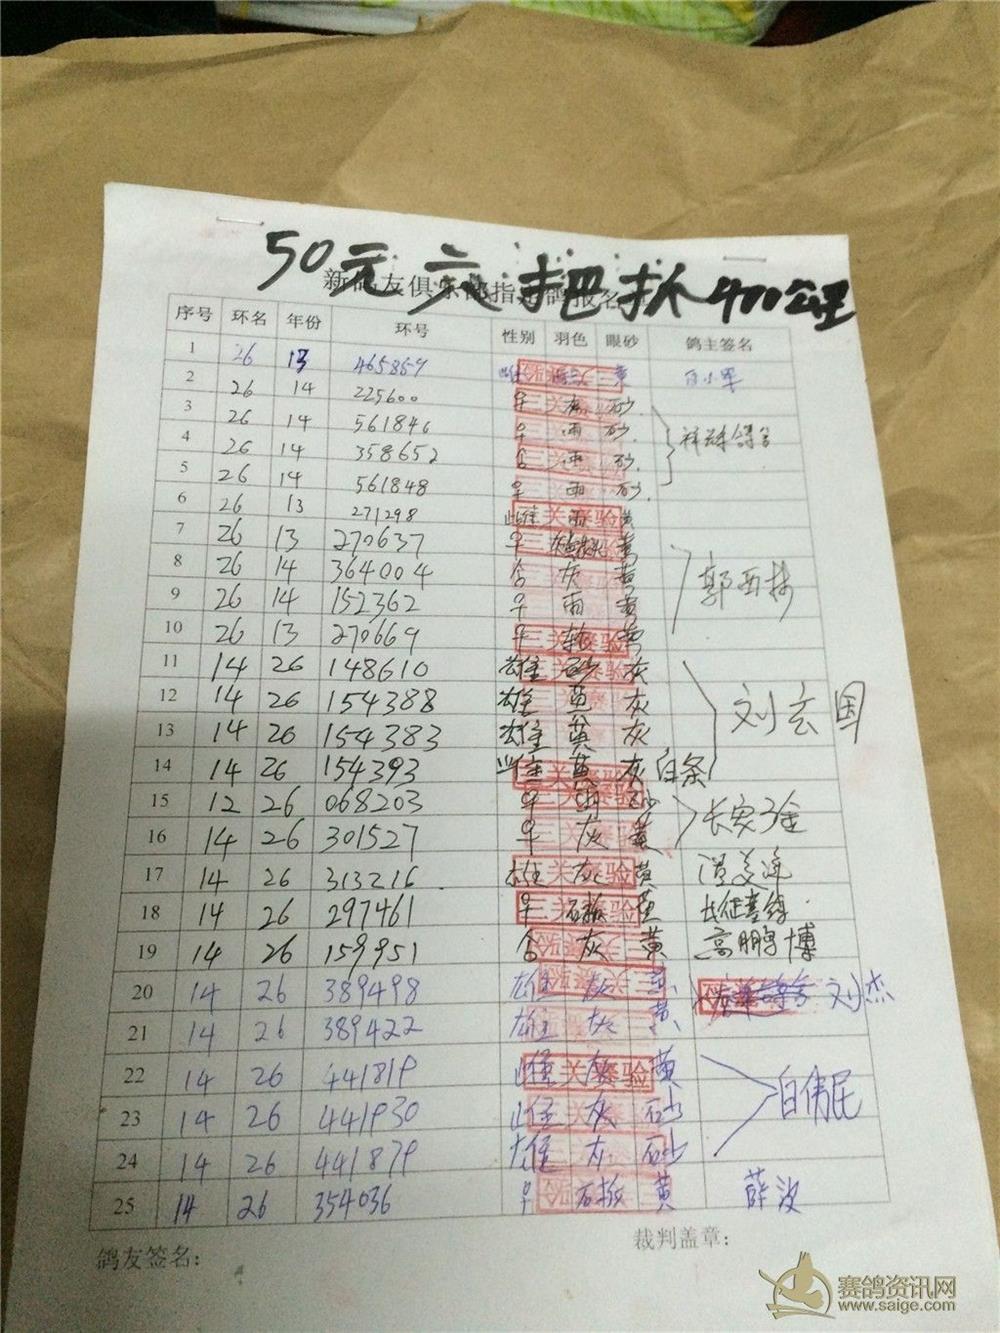 50元 六把抓 400公里
新鸽友俱乐部指定鸽报名
序号 环名 年份 环号 性别 羽色 眼砂 鸽主签名
1 26 13 465869 雌 黄 白小军
2 26 14 225600 早 砂
3 26 14 561846 早 雨 砂
4 26 14 358652 合 雨 砂
5 26 14 561848 早 雨 砂
6 26 13 271298 雌 雨 黄
7 26 13 270637 早 黄
8 26 14 364004 合 灰 黄
9 26 14 152362 早 雨 黄 郭西林
10 26 13 270669 早 黄
11 14 26 148610 雄 砂 灰
12 14 26 154388 雄 黄 灰
13 14 26 154383 雄 黄 灰 刘玄国
14 14 26 154393 雌 黄 灰 白条
15 12 26 068203 早 雨 砂
16 14 26 301527 早 灰 黄
17 14 26 313216 雄 灰 黄
18 14 26 297461 早 石板 黄
19 14 26 159951 合 灰 黄 高鹏博
20 14 26 389498 雄 灰 黄 刘杰
21 14 26 389422 雄 灰 黄
22 14 26 441819 雌 灰 黄
23 14 26 441930 雌 灰 砂 白伟民
24 14 26 441879 雄 灰 砂
25 14 26 354036 早 石板 黄 薛波
鸽友签名：
裁判盖章：
赛鸽资讯网
www.saige.com